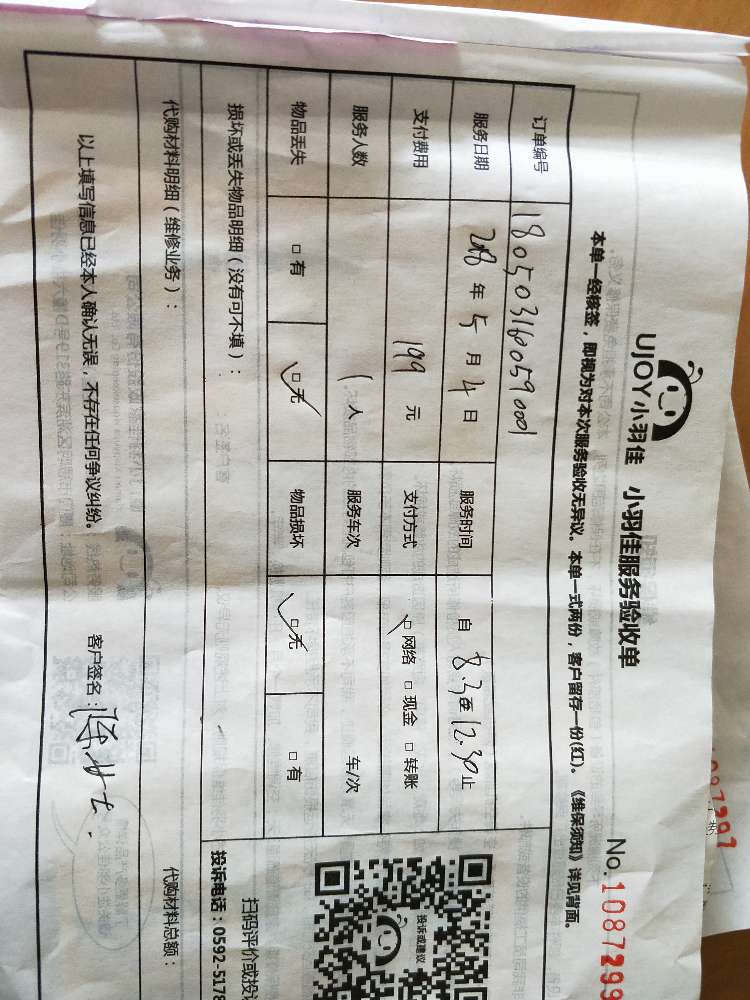 UJOY小羽佳 小羽佳服务验收单
No.1087299
本单一经核签，即视为对本次服务验收无异议。本单一式两份，客户留存一份(红)。《维保须知》详见背面。
订单编号 180503160590001
服务日期 2018年5月4日 服务时间 自8.30至12.30止
支付费用 199元 支付方式 □网络 □现金 □转账
服务人数 1人 服务车次 车/次
物品丢失 □有 □无 物品损坏 □无 □有
损坏或丢失物品明细（没有可不填）：
代购材料明细（维修业务）：
代购材料总额：
以上填写信息已经本人确认无误，不存在任何争议纠纷。
客户签名：陈女士
投诉或建议
扫码评价或投
投诉电话：0592-5178
1087297